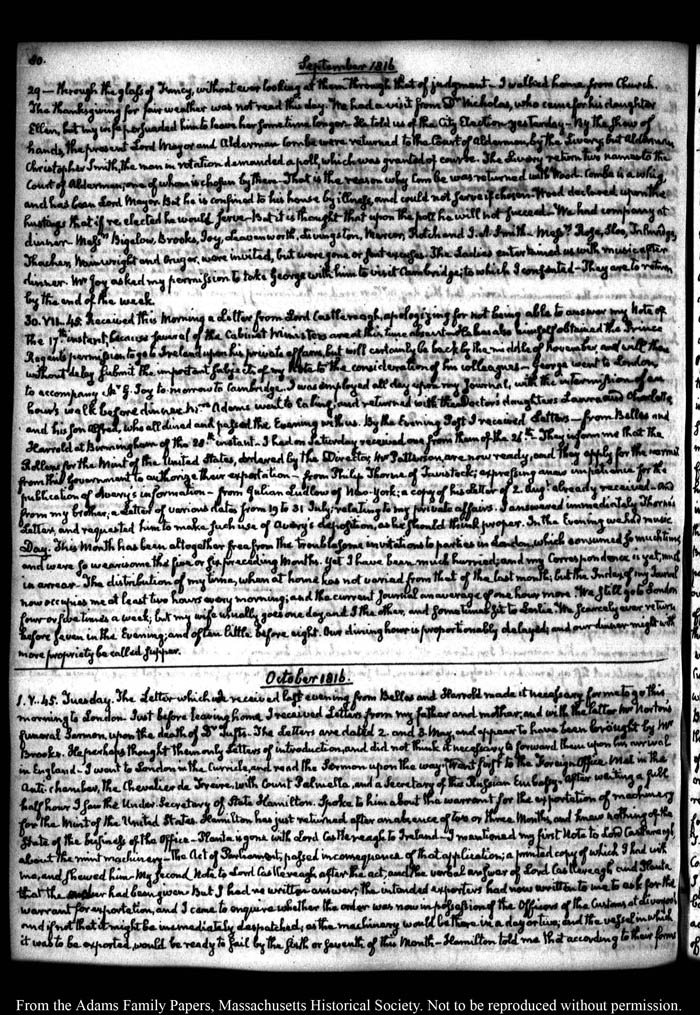 80.
September 1816
29 — through the glass of Fancy, without ever looking at them through that of judgment — I walked home from Church.
The thanksgiving for fair weather was not read this day. We had a visit from Dr Nicholas, who came for his daughter
Ellen, but my wife persuaded him to leave her some time longer. He told us of the City Election yesterday — By the shew of
hands, the present Lord Mayor and Alderman Combe were returned to the Court of Aldermen, by the Livery; but Alderman
Christopher Smith, the man in rotation demanded a poll, which was granted of course. The Livery return two names to the
Court of Aldermen; one of whom is chosen by them — That is the reason why Combe was returned with Wood. Combe is a whig,
and has been Lord Mayor. But he is confined to his house by illness, and could not serve if chosen. Wood declared upon the
hustings that if re elected he would serve — But it is thought that upon the poll he will not succeed — We had company at
dinner. Messrs Bigelow, Brooks, Joy, Leavenworth, Livingston, Mercer, Rotch and J. A. Smith. Messrs Rose, Iloo,
Thacher, Wainwright and Cruger, were invited, but were gone or sent excuses. The Ladies entertained us with music after
dinner. Mr Joy asked my permission to take George with him to visit Cambridge; to which I consented — They are to return
by the end of the week.
30. VII..45. Received this Morning a Letter from Lord Castlereagh, apologizing for not being able to answer my Note of
the 17th instant, because several of the Cabinet Ministers are at this time absent — He has also himself obtained the Prince
Regent's permission to go to Ireland upon his private affairs, but will certainly be back by the middle of November, and will then
without delay submit the important subjects of my Note to the consideration of his colleagues — George went to London,
to accompany Mr G. Joy to-morrow to Cambridge. I was employed all day upon my Journal, with the intermission of an
hour's walk before dinner. Mrs Adams went to Ealing, and returned with the Doctor's daughters Laura and Charlotte
and his son Alfred, who all dined and passed the Evening with us. By the Evening Post I received Letters — from Belles and
Harrold at Birmingham of the 28th instant. I had on Saturday received one from them of the 26th. They inform me that the
Rollers for the Mint of the United States, ordered by the Director, Mr Patterson, are now ready, and they apply for the warrant
from this Government to authorize their exportation — from Philip Thorne of Tavistock; expressing anew impatience for the
publication of Avery's information — from Gulian Ludlow of New-York; a copy of his Letter of 2. Augt already received — And
from my brother, a Letter of various dates from 19 to 31 July, relating to my private affairs. I answered immediately Thorne's
Letter, and requested him to make such use of Avery's deposition, as he should think proper. In the Evening we had music
Day. This Month has been altogether free from the troublesome invitations to parties in London, which consumed so much time,
and were so wearisome the five or six preceding Months. Yet I have been much hurried; and my Correspondence is yet much
in arrear. The distribution of my time, when at home has not varied from that of the last month; but the Index of my Journal
now occupies me at least two hours every morning; and the current Journal an average of one hour more. We still go to London
four or five times a week; but my wife usually goes one day, and I the other, and sometimes go to Leslie. We scarcely ever return
before seven in the Evening; and often little before eight. Our dining hour is proportionably delayed; and our dinner might with
more propriety be called supper.
October 1816.
1. V..45. Tuesday. The Letter which I received last evening from Belles and Harrold made it necessary for me to go this
morning to London. Just before leaving home I received Letters from my father and mother, and with the latter Mr Norton's
funeral Sermon upon the death of Dr Tufts. The Letters are dated 2. and 3. May, and appear to have been brought by Mr
Brooks. He perhaps thought them only Letters of introduction, and did not think it necessary to forward them upon his arrival
in England — I went to London in the Curricle, and read the Sermon upon the way. Went first to the Foreign Office. Met in the
Anti-chamber, the Chevalier de Freire, with Count Palmella, and a Secretary of the Russian Embassy. After waiting a full
half hour I saw the Under Secretary of State Hamilton. Spoke to him about the warrant for the exportation of machinery
for the Mint of the United States. Hamilton has just returned after an absence of two or three Months, and knew nothing of the
State of the business of the Office — Planta is gone with Lord Castlereagh to Ireland — I mentioned my first Note to Lord Castlereagh,
about the mint machinery — The Act of Parliament, passed in consequence of that application; a printed copy of which I had with
me, and shewed him — My second Note to Lord Castlereagh after the act, and the verbal answer of Lord Castlereagh and Planta
that the order had been given. But I had no written answer; the intended exporters had now written to me to ask for the
warrant for exportation, and I came to enquire whether the order was now in possession of the Officers of the Customs at Liverpool
and if not that it might be immediately despatched, as the machinery would be there in a day or two; and the vessel in which
it was to be exported, would be ready to sail by the sixth or seventh of this Month — Hamilton told me that according to their forms
From the Adams Family Papers, Massachusetts Historical Society. Not to be reproduced without permission.